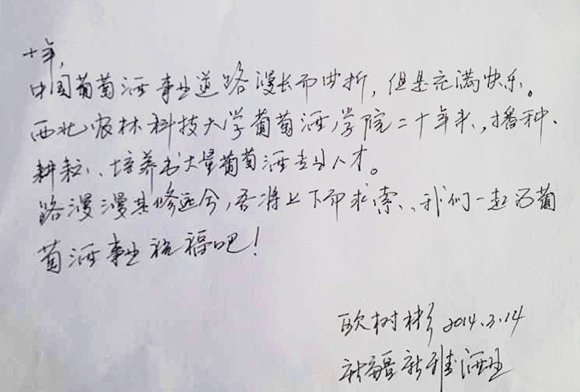 十年,
中国葡萄酒事业道路漫长而曲折，但是充满快乐。
西北农林科技大学葡萄酒学院二十年来，播种、
耕耘、培养出大量葡萄酒专业人才。
路漫漫其修远兮，吾将上下而求索、我们一起为葡
萄酒事业祝福吧！
欧树彬 2014.3.14
新疆新雅酒业